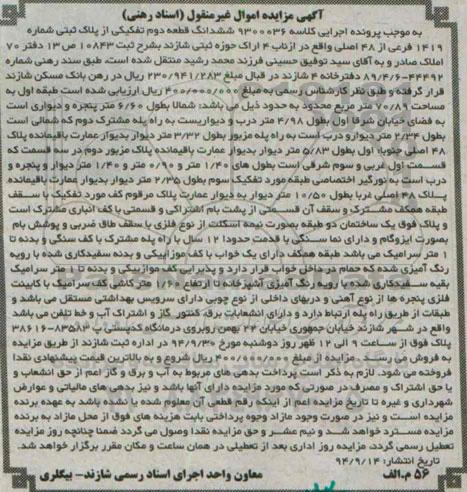 آگهی مزایده اموال غیرمنقول (اسناد رهنی)
به موجب پرونده اجرایی کلاسه ۹۳۰۰۰۳۶ ششدانگ قطعه دوم تفکیکی از پلاک ثبتی شماره
۱۴۱۹ فرعی از ۴۸ اصلی واقع در ارتاب ۴ اراک حوزه ثبتی شازند بشرح ثبت ۱۰۸۴۳ ص ۱۳ دفتر ۷۰
املاک صادر و به آقای سید توفیق حسینی فرزند محمد رشید منتقل شده است، طبق سند رهنی شماره
۴۴۴۹۲-۸۹/۴/۶ دفترخانه ۴ شازند در قبال مبلغ ۲۳۰/۹۴۱/۲۸۳ ریال در رهن بانک مسکن شازند
قرار گرفته و طبق نظر کارشناس رسمی به مبلغ ۴۰۰/۰۰۰/۰۰۰ ریال ارزیابی شده است طبقه اول به
مساحت ۷۰/۸۹ متر مربع محدود به حدود ذیل می باشد: شمالا بطول ۶/۶۰ متر پنجره و دیواری است
به فضای خیابان شرقا اول بطول ۴/۹۸ متر درب و دیواریست به راه پله مشترک دوم که شمالی است
بطول ۲/۳۴ متر دیوارو درب است به راه پله مزبور بطول ۳/۳۲ متر دیوار بدیوار عمارت باقیمانده پلاک
۴۸ اصلی جنوبا: اول بطول ۵/۸۳ متر دیوار بدیوار عمارت باقیمانده پلاک مزبور دوم در سه قسمت که
قسمت اول غربی و سوم شرقی است بطول های ۱/۴۰ متر و ۰/۹۰ متر و ۱/۴۰ متر دیوار و پنجره و
درب است به نورگیر اختصاصی طبقه مورد تفکیک سوم بطول ۲/۳۵ متر دیوار بدیوار عمارت باقیمانده
پلاک ۴۸ اصلی غربا بطول ۱۰/۵۰ متر دیوار به دیوار عمارت پلاک مرقوم کف مورد تفکیک با سقف
طبقه همکف مشترک و سقف آن قسمتی از پشت بام اشتراکی و قسمتی با کف انباری مشترک است
و پلاک فوق یک ساختمان دو طبقه بصورت نیمه اسکلت از نوع فلزی با سقف طاق ضربی و پوشش بام
بصورت ایزوگام و دارای نما سنگی با قدمت حدودا ۱۲ سال با راه پله مشترک با کف سنگی و بدنه تا
۱ متر سرامیک می باشد طبقه همکف دارای یک خواب با کف موزاییکی و بدنه سفیدکاری شده با رویه
رنگ آمیزی شده که حمام در داخل خواب قرار دارد و پذیرایی کف موزاییکی و بدنه تا ۱ متر سرامیک
بقیه سفیدکاری شده با رویه رنگ آمیزی آشپزخانه تا ارتفاع ۱/۶۰ متر کاشی کف سرامیک با کابینت
فلزی پنجره ها از نوع آهنی و دربهای داخلی از نوع چوبی دارای سرویس بهداشتی مستقل می باشد و
طبقات از طریق راه پله ارتباط دارد و دارای انشعابات برق، کنتور گاز و اشتراک آب و خط تلفن می باشد
واقع در شهر شازند خیابان جمهوری خیابان ۲۲ بهمن روبروی درمانگاه کدپستی ۸۳۵۸۳-۳۸۶۱۶
پلاک فوق از ساعت ۹ الی ۱۲ ظهر روز دوشنبه مورخ ۹۴/۹/۳۰ در اداره ثبت شازند از طریق مزایده
به فروش می رسد. مزایده از مبلغ ۴۰۰/۰۰۰/۰۰۰ ریال شروع و به بالاترین قیمت پیشنهادی نقدا
فروخته می شود. لازم به ذکر است پرداخت بدهی های مربوط به آب و برق و گاز اعم از حق انشعاب و
یا حق اشتراک و مصرف در صورتی که مورد مزایده دارای آنها باشد و نیز بدهی های مالیاتی و عوارض
شهرداری و غیره تا تاریخ مزایده اعم از اینکه رقم قطعی آن معلوم شده یا نشده باشد به عهده برنده
مزایده است و نیز در صورت وجود مازاد وجوه پرداختی بابت هزینه های فوق از محل مازاد به برنده
مزایده مسترد خواهد شد و نیم عشر و حق مزایده نقدا وصول می گردد ضمنا چنانچه روز مزایده
تعطیل رسمی گردد، مزایده روز اداری بعد از تعطیلی در همان ساعت و مکان مقرر برگزار خواهد شد.
تاریخ انتشار: ۹۴/۹/۱۴
۵۶ م.الف معاون واحد اجرای اسناد رسمی شازند- بیگلری